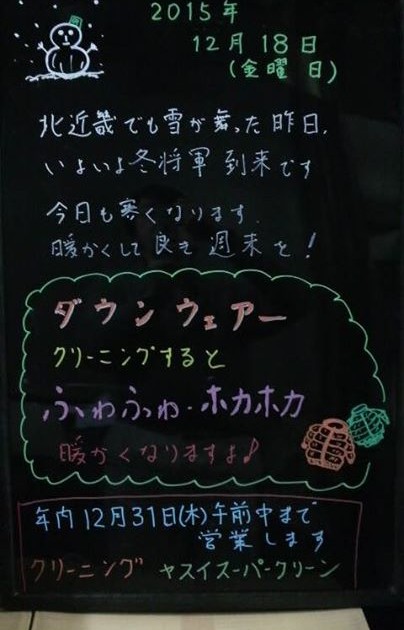 2015年
12月18日
(金曜日)
北近畿でも雪が舞った昨日、
いよいよ冬将軍到来です
今日も寒くなります。
暖かくして良き週末を!
ダウンウェアー
クリーニングすると
ふわふわ・ホカホカ
暖かくなりますよ♪
年内12月31日(木)午前中まで
営業します
クリーニング ヤスイスーパークリーン